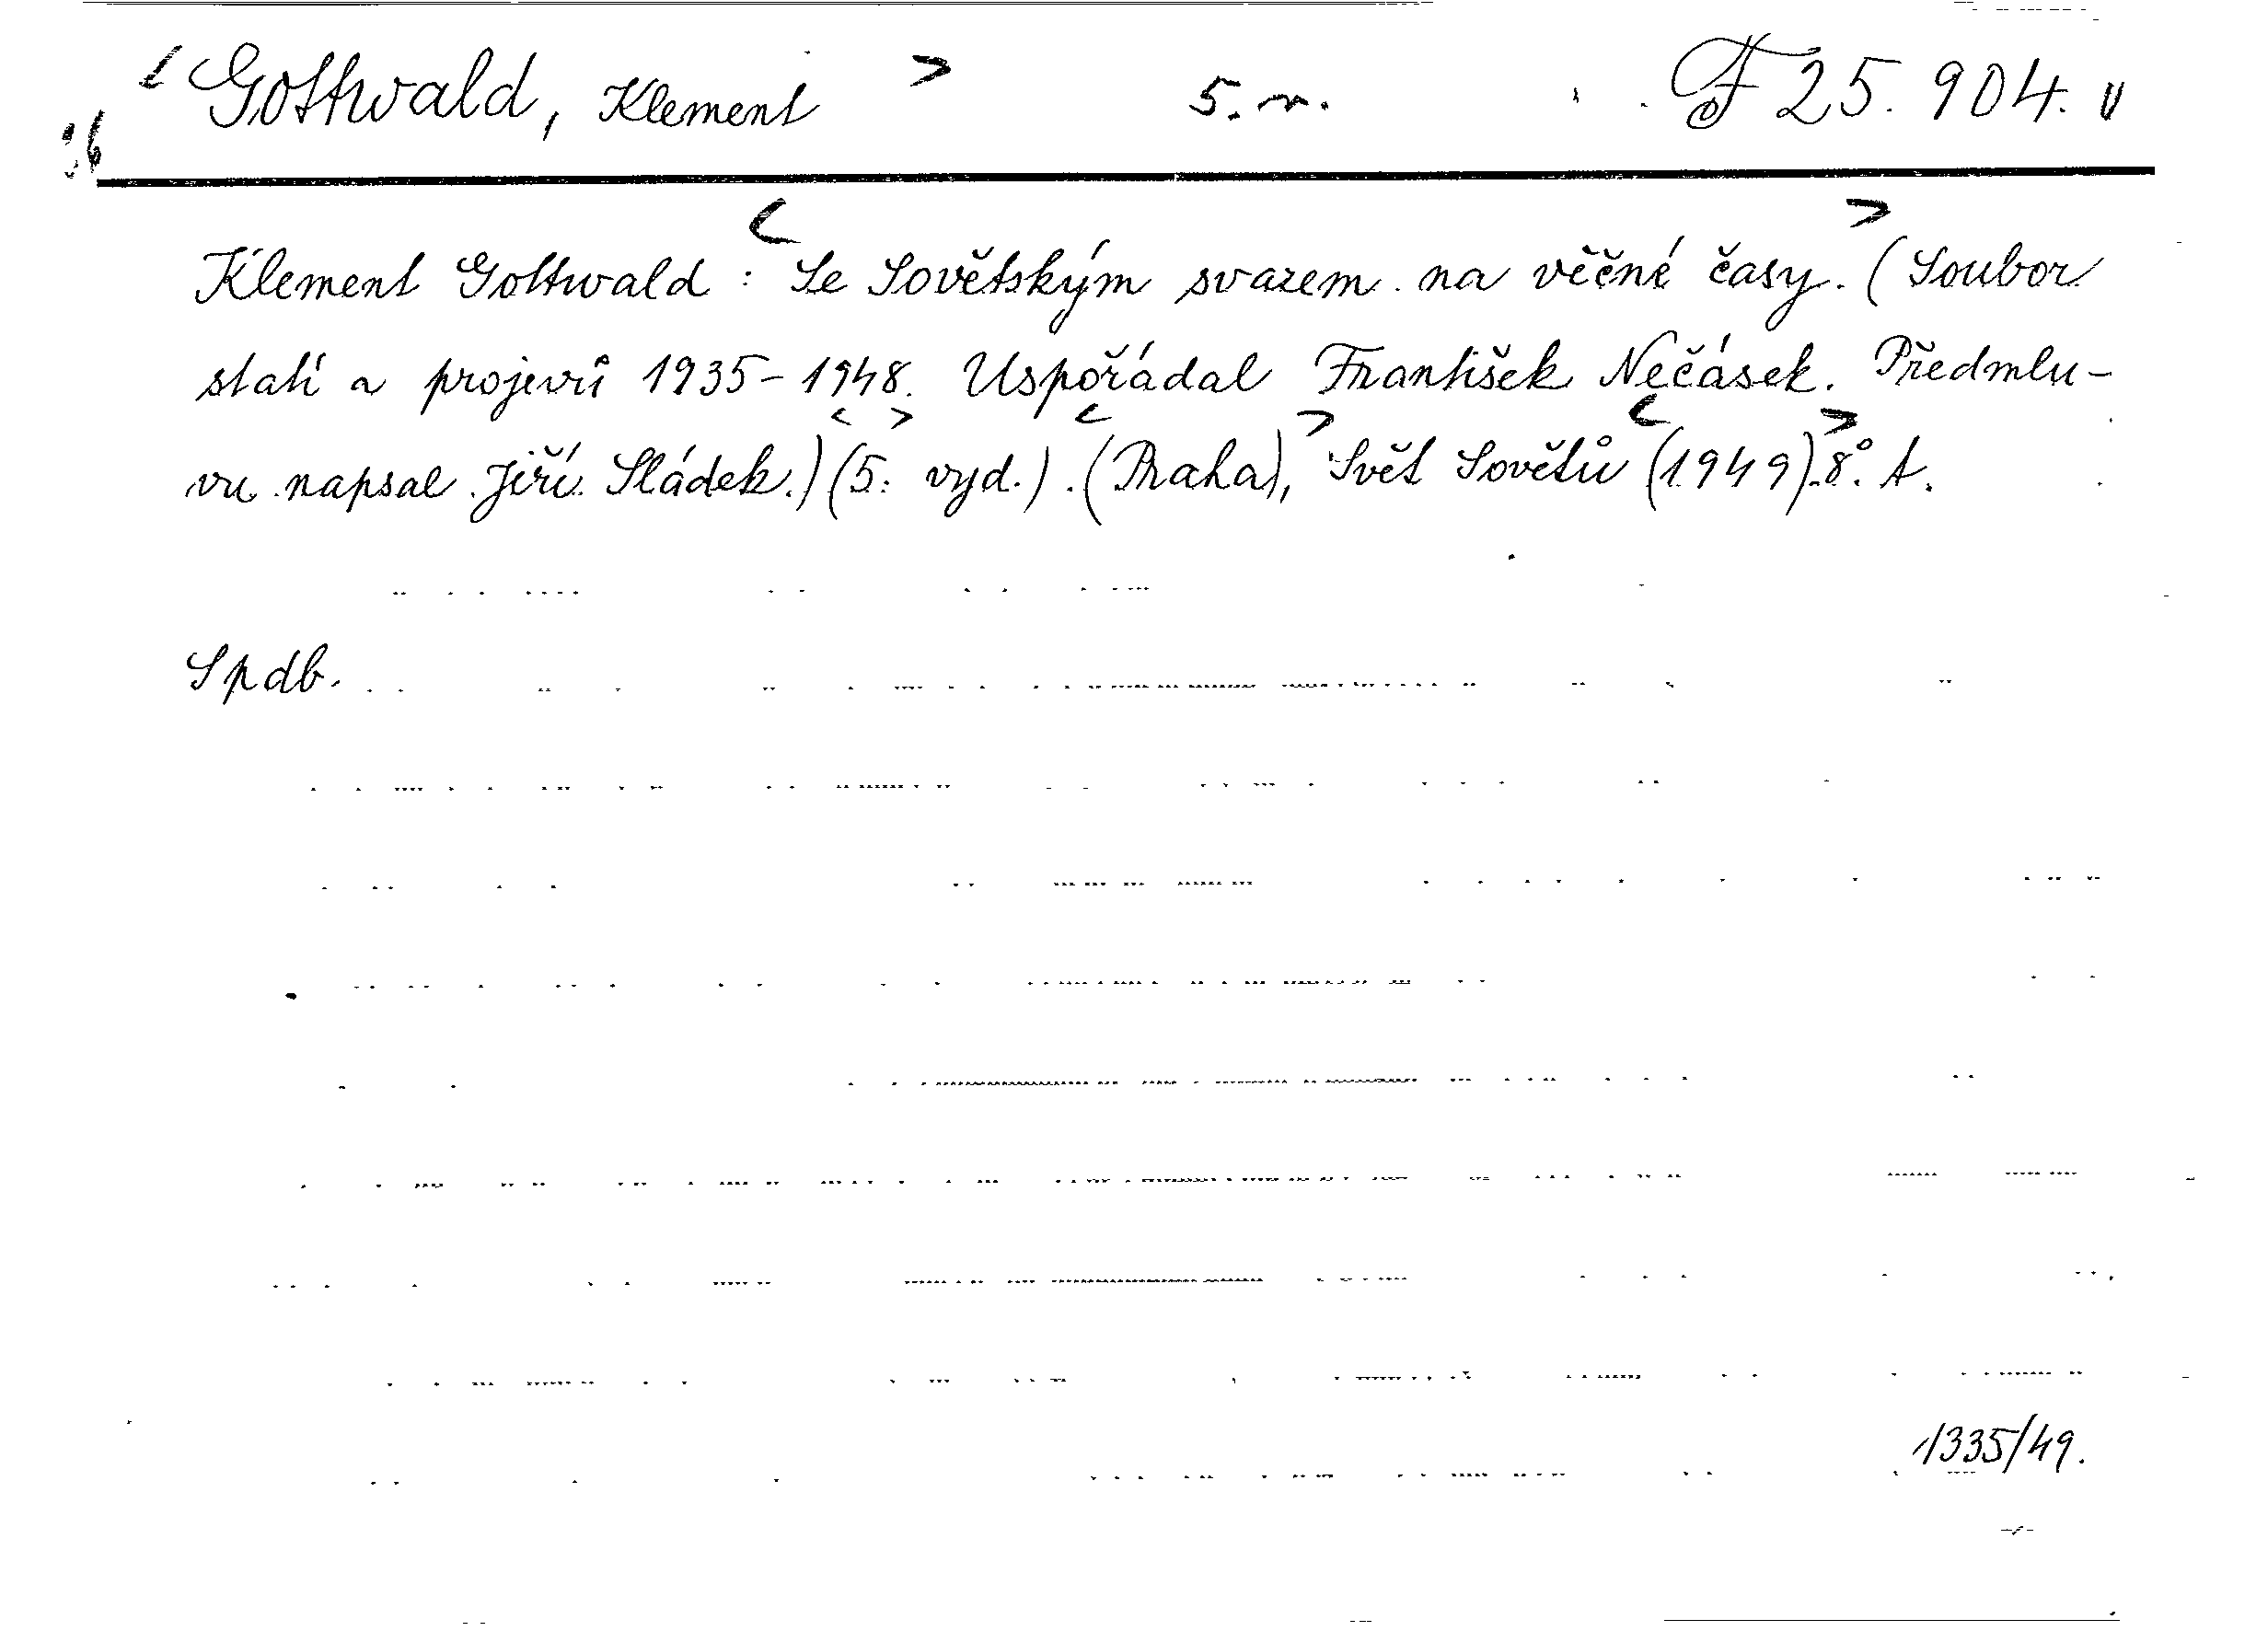 < Gottwald, Klement > 5. v. F 25.904.
Klement Gottwald : < Se Sovětským svazem na věčné časy. > (Soubor
statí a projevů 1935-1948. Uspořádal František Nečásek. Předmlu-
vu napsal Jiří Sládek.) (<5.> vyd.). <(Praha),> Svět Sovětů <(1949).> 8°. A.
Spdb.
1335/49.